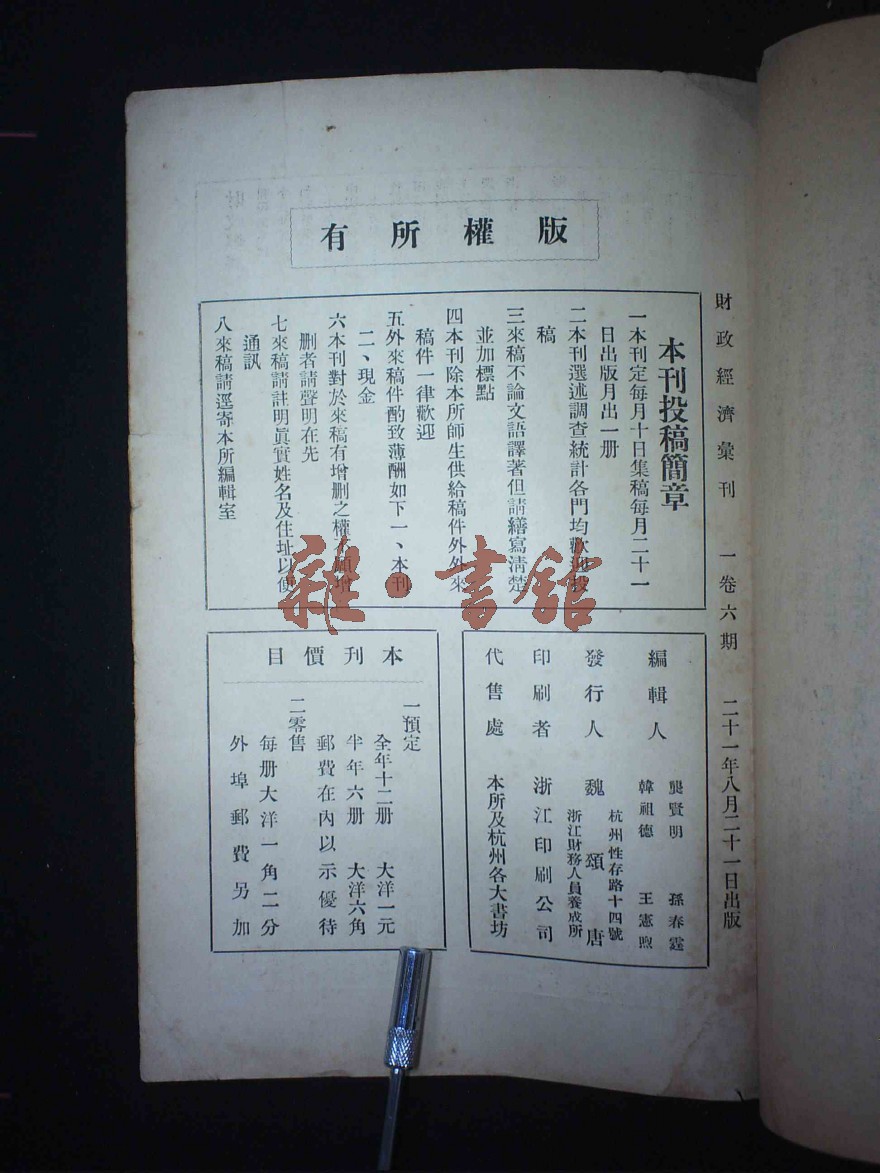 版權所有
財政經濟彙刊 一卷六期 二十一年八月二十一日出版
本刊投稿簡章
一本刊定每月十日集稿每月二十一
日出版月出一册
二本刊選述調查統計各門均歡迎投
稿
三來稿不論文語譯著但請繕寫淸楚
並加標點
四本刊除本所師生供給稿件外外來
稿件一律歡迎
五外來稿件酌致薄酬如下一、本刊
二、現金
六本刊對於來稿有增刪之權不願增
刪者請聲明在先
七來稿請註明眞實姓名及住址以便
通訊
八來稿請逕寄本所編輯室
編輯人 龔賢明 孫春霆
韓祖德 王憲煦
發行人 魏頌唐
杭州性存路十四號
浙江財務人員養成所
印刷者 浙江印刷公司
代售處 本所及杭州各大書坊
本刊價目
一預定
全年十二册 大洋一元
半年六册 大洋六角
郵費在內以示優待
二零售
每册大洋一角二分
外埠郵費另加
雜·書館